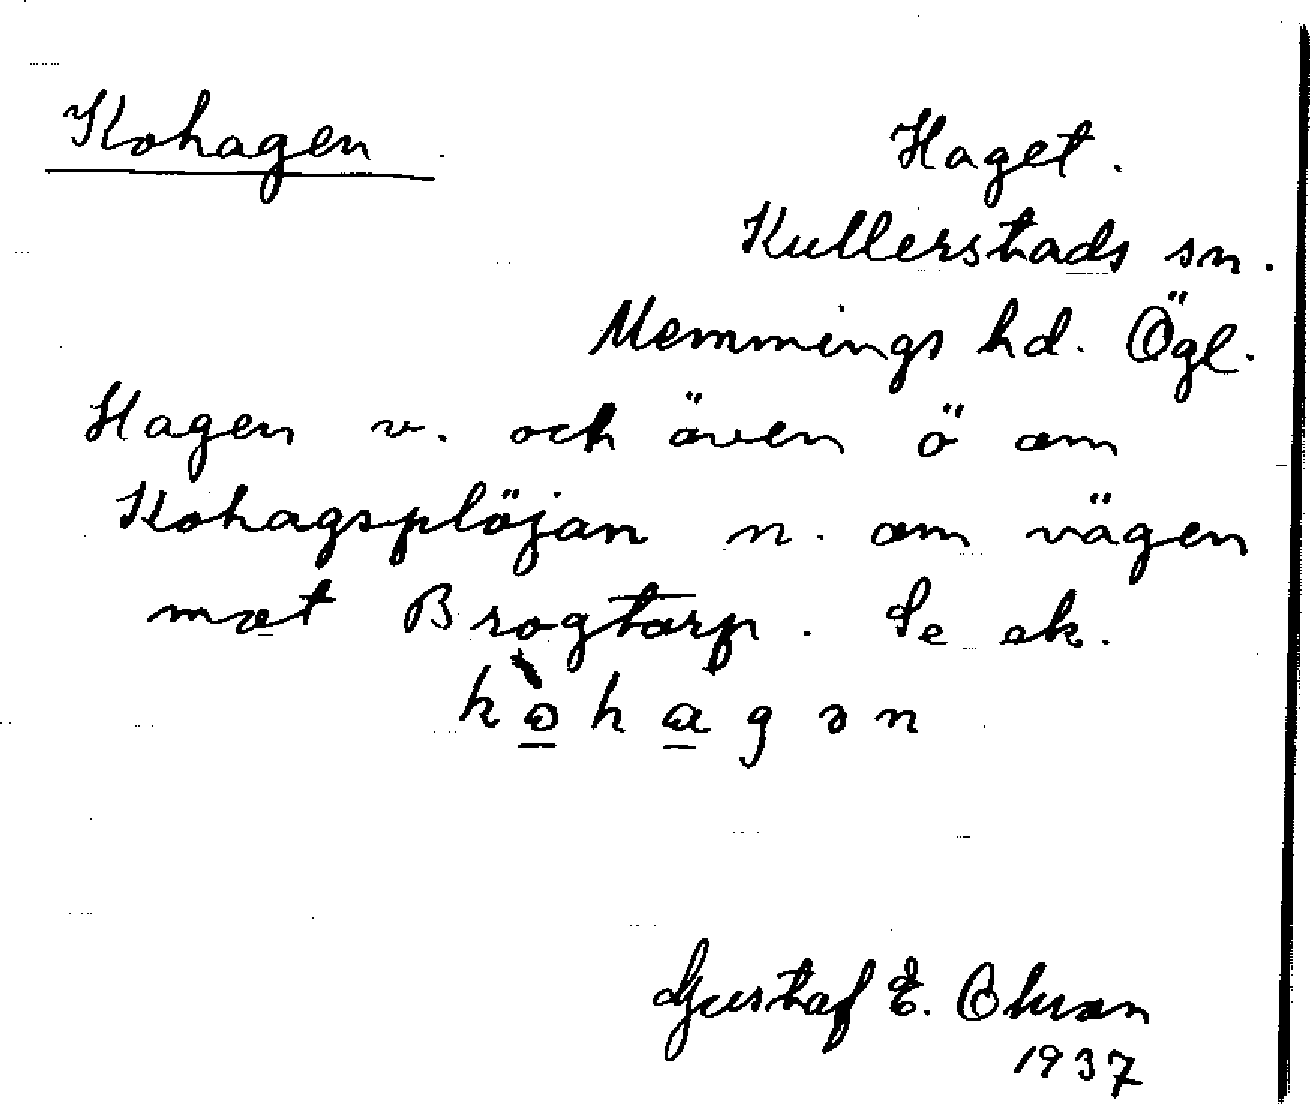 Kohagen
Haget.
Kullerstads sn.
Memmings hd. Ögl.
Hagen v. och även ö om
Kohagsplöjan n. om vägen
mot Brogtorp. Se ek.
kòhagən
Gustaf E.
1937